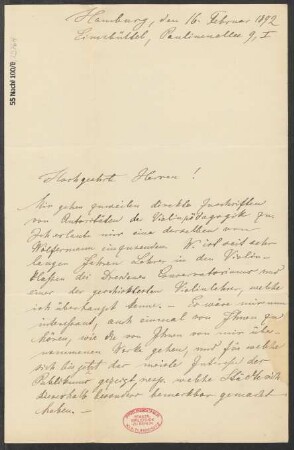 Hamburg, den 16. Februar 1892
Eimsbüttel, Paulinenallee 9, I
55 Nachl 100/B
Hochgeehrte Herren!
Mir gehen zuweilen direkte Zuschriften
von Autoritäten der Violinpädagogik zu.
Ich erlaube mir eine derselben von
Wolfermann einzusenden. W. ist seit sehr
langen Jahren Lehrer in den Violin-
klassen des Dresdner Conservatoriums und
einer der geschicktesten Violinlehrer, welche
ich überhaupt kenne. – Es wäre mir nun
interessant, auch einmal von Ihnen zu
hören, wie die von Ihnen von mir über-
nommenen Werke gehen, und für welche
sich bis jetzt das meiste Interesse des
Publikums gezeigt, resp. welche Städte sich
dieserhalb besonders bemerkbar gemacht
haben. –